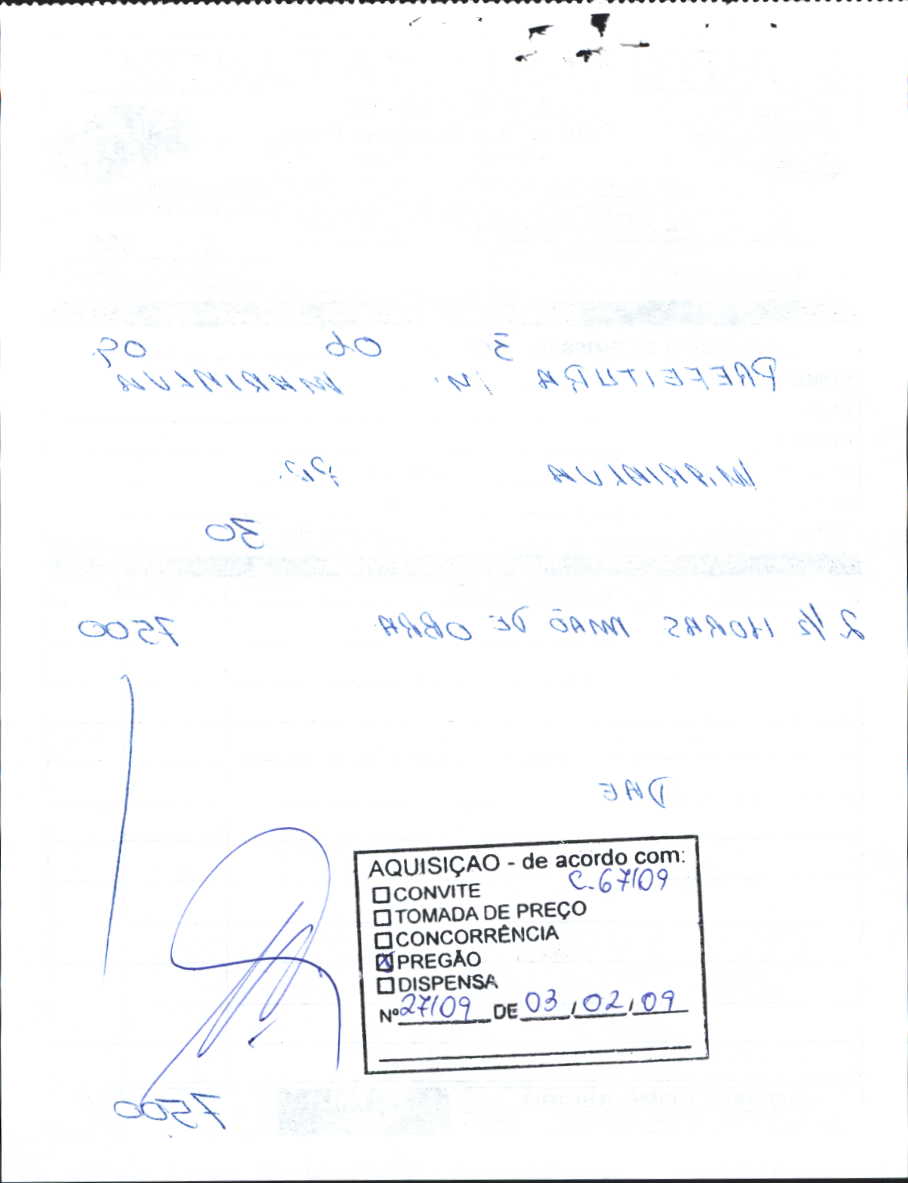 3 06 09
PREFEITURA M. MARIALVA
MARIALVA PR.
30
2 1/2 HORAS MÃO DE OBRA 7500
DAE
AQUISIÇAO - de acordo com:
C-67/09
☐ CONVITE
☐ TOMADA DE PREÇO
☐ CONCORRÊNCIA
☒ PREGÃO
☐ DISPENSA
Nº 27/09 DE 03 / 02 / 09
7500